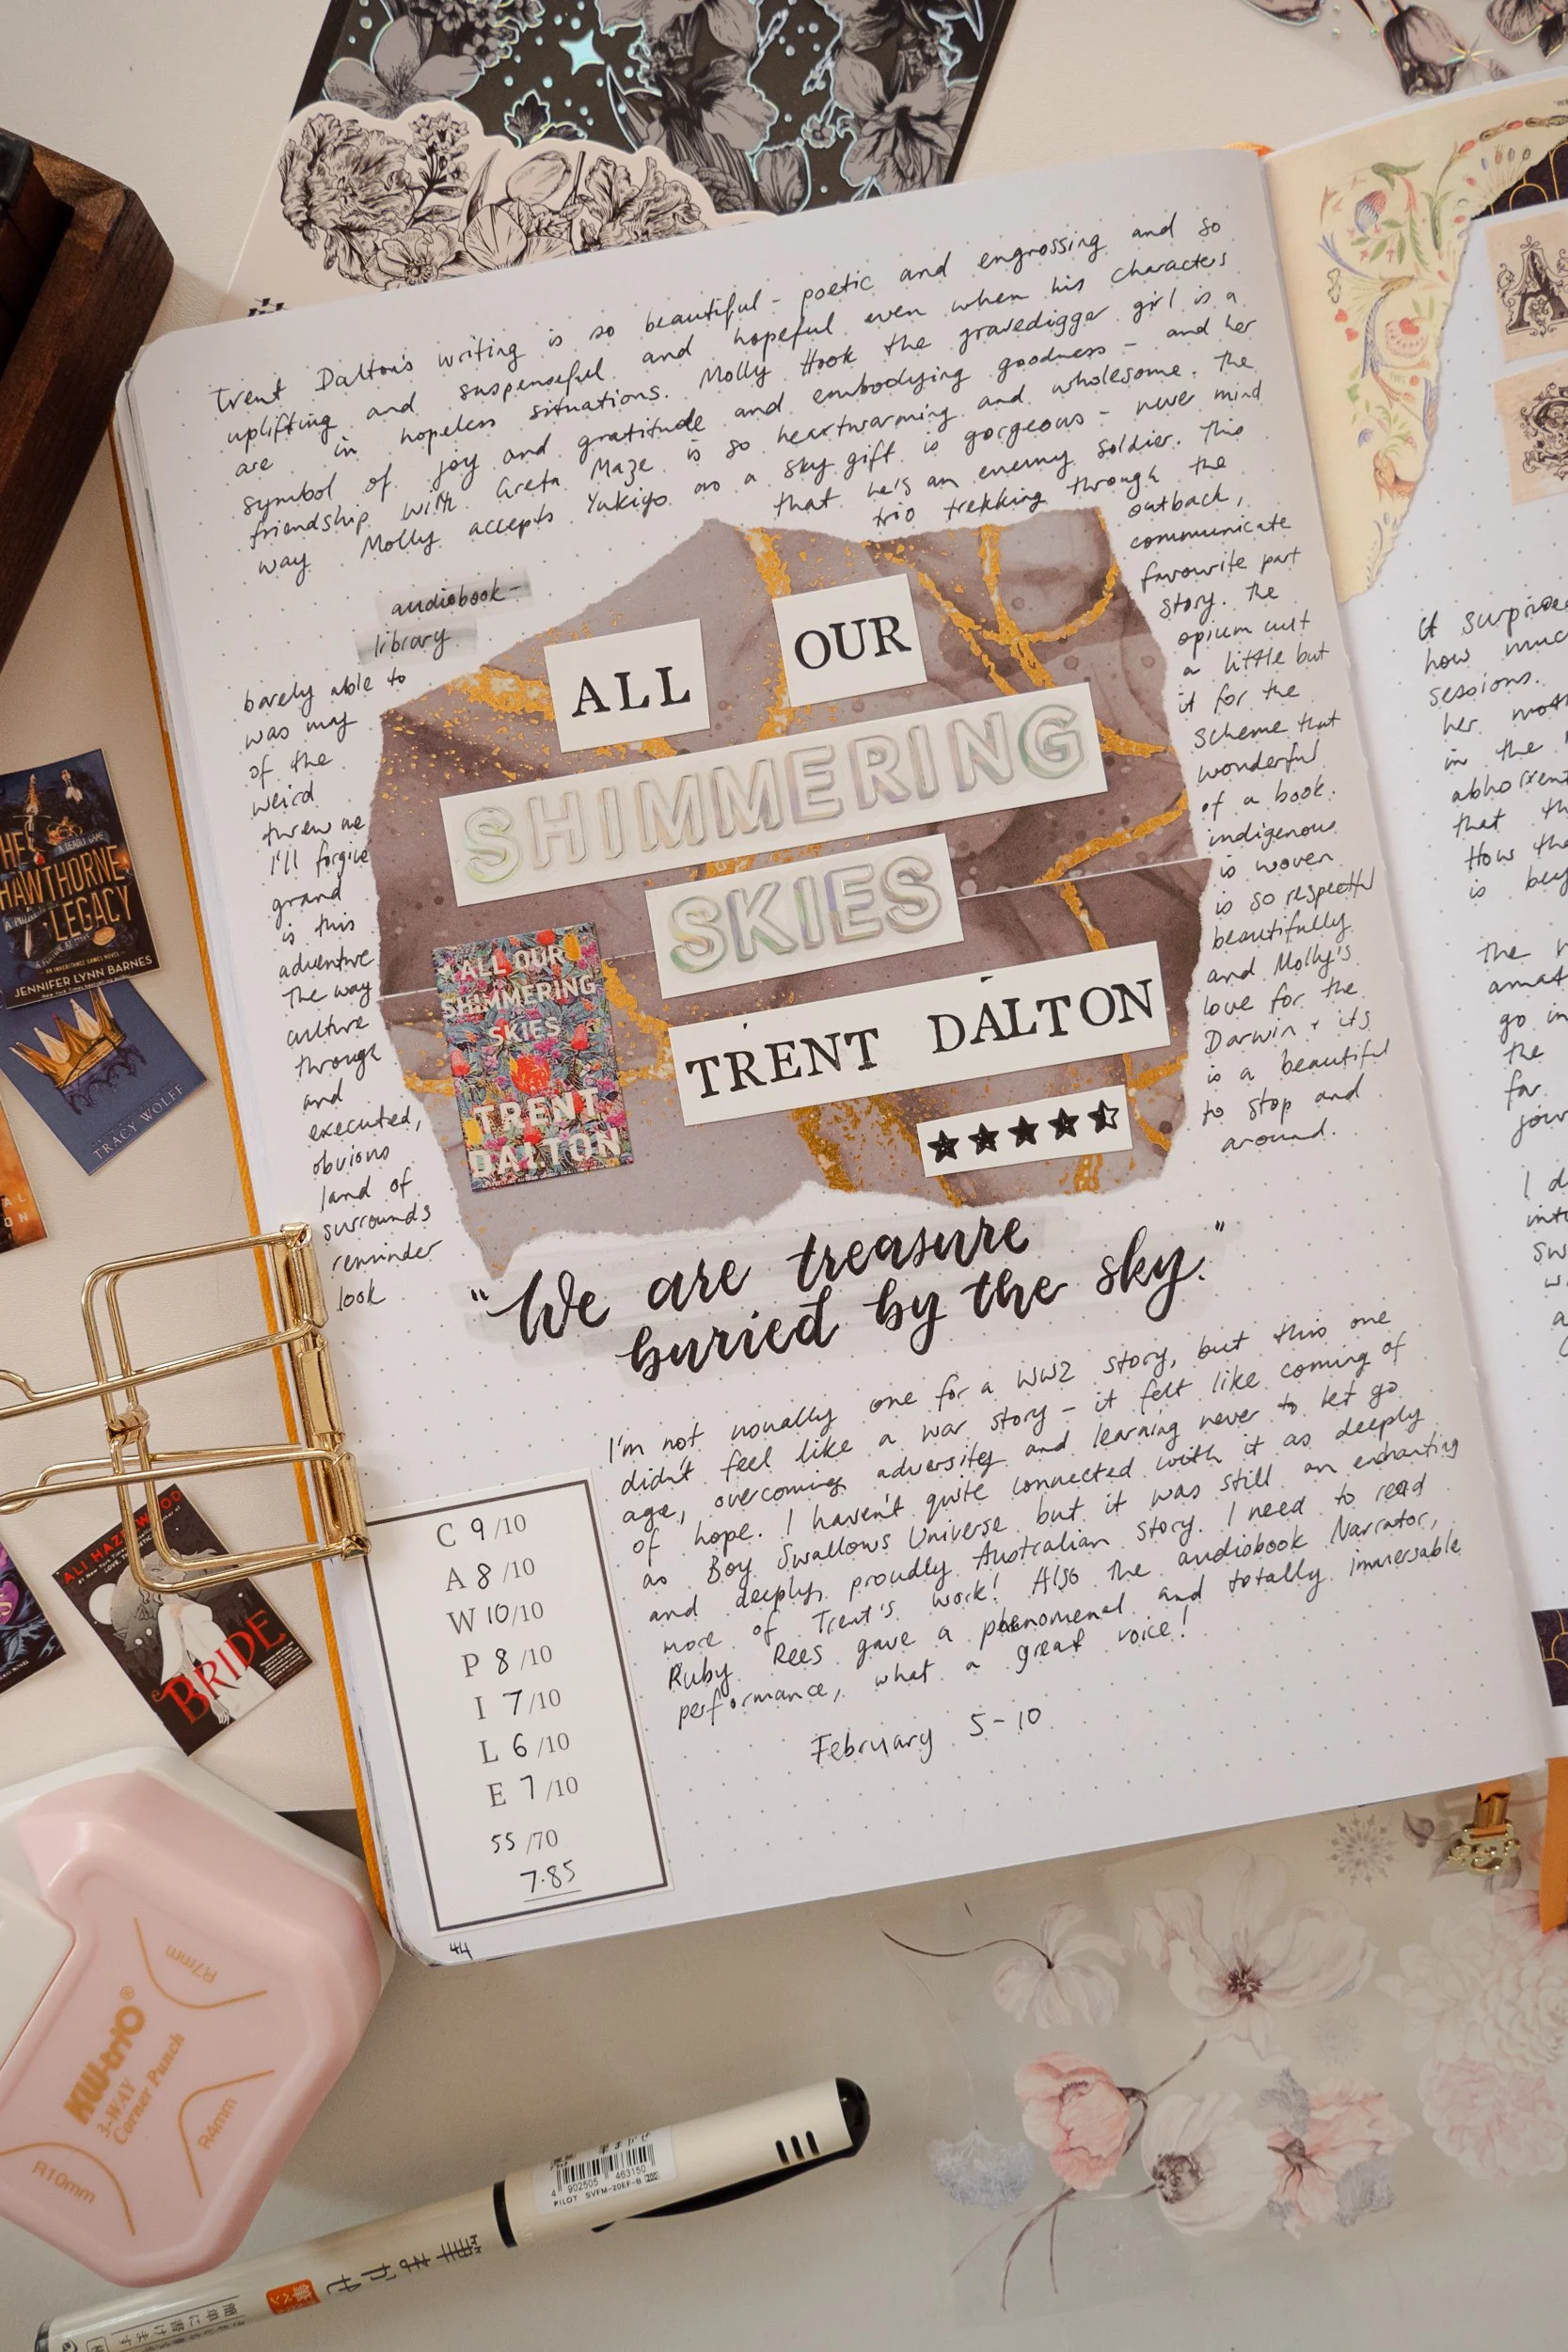 Trent Dalton's writing is so beautiful - poetic and engrossing and so
uplifting and suspenseful and hopeful even when his characters
are in hopeless situations. Molly Hook the gravedigger girl is a
symbol of joy and gratitude and embodying goodness - and her
friendship with Greta Maze is so heartwarming and wholesome. The
way Molly accepts Yukiyo as a sky gift is gorgeous - never mind
that he's an enemy soldier. This
trio trekking through the
outback,
audiobook -
library
barely able to communicate
was may favourite part
of the story. The
weird opium cult
threw me a little but
I'll forgive it for the
grand scheme that
is this wonderful
adventure of a book.
The way indigenous
culture is woven
through is so respectful
and beautifully
executed, and Molly's
obvious love for the
land of Darwin + its
surrounds is a beautiful
reminder to stop and
look around.
ALL OUR
SHIMMERING
SKIES
TRENT DALTON
ALL OUR
SHIMMERING
SKIES
TRENT
DALTON
"We are treasure
buried by the sky."
I'm not usually one for a WW2 story, but this one
didn't feel like a war story - it felt like coming of
age, overcoming adversity and learning never to let go
of hope. I haven't quite connected with it as deeply
as Boy Swallows Universe but it was still an enchanting
and deeply, proudly Australian story. I need to read
more of Trent's work! Also the audiobook Narrator,
Ruby Rees gave a phenomenal and totally immersable
performance, what a great voice!
February 5-10
C 9/10
A 8/10
W 10/10
P 8/10
I 7/10
L 6/10
E 7/10
55/70
7.85
44
It surprise
how much
sessions.
her moth
in the
abhorrent
that th
How tha
is bey
The
amaz
go in
the
far
jour
I d
into
Sw
THE
HAWTHORNE
LEGACY
JENNIFER LYNN BARNES
TRACY WOLFF
ALI HAZELWOOD
BRIDE
A
KW-triO®
3-WAY
Corner Punch
R7mm
R4mm
R10mm
4 902505 463150
PILOT SVFM-20EF-B
筆まかせ
筆ペン